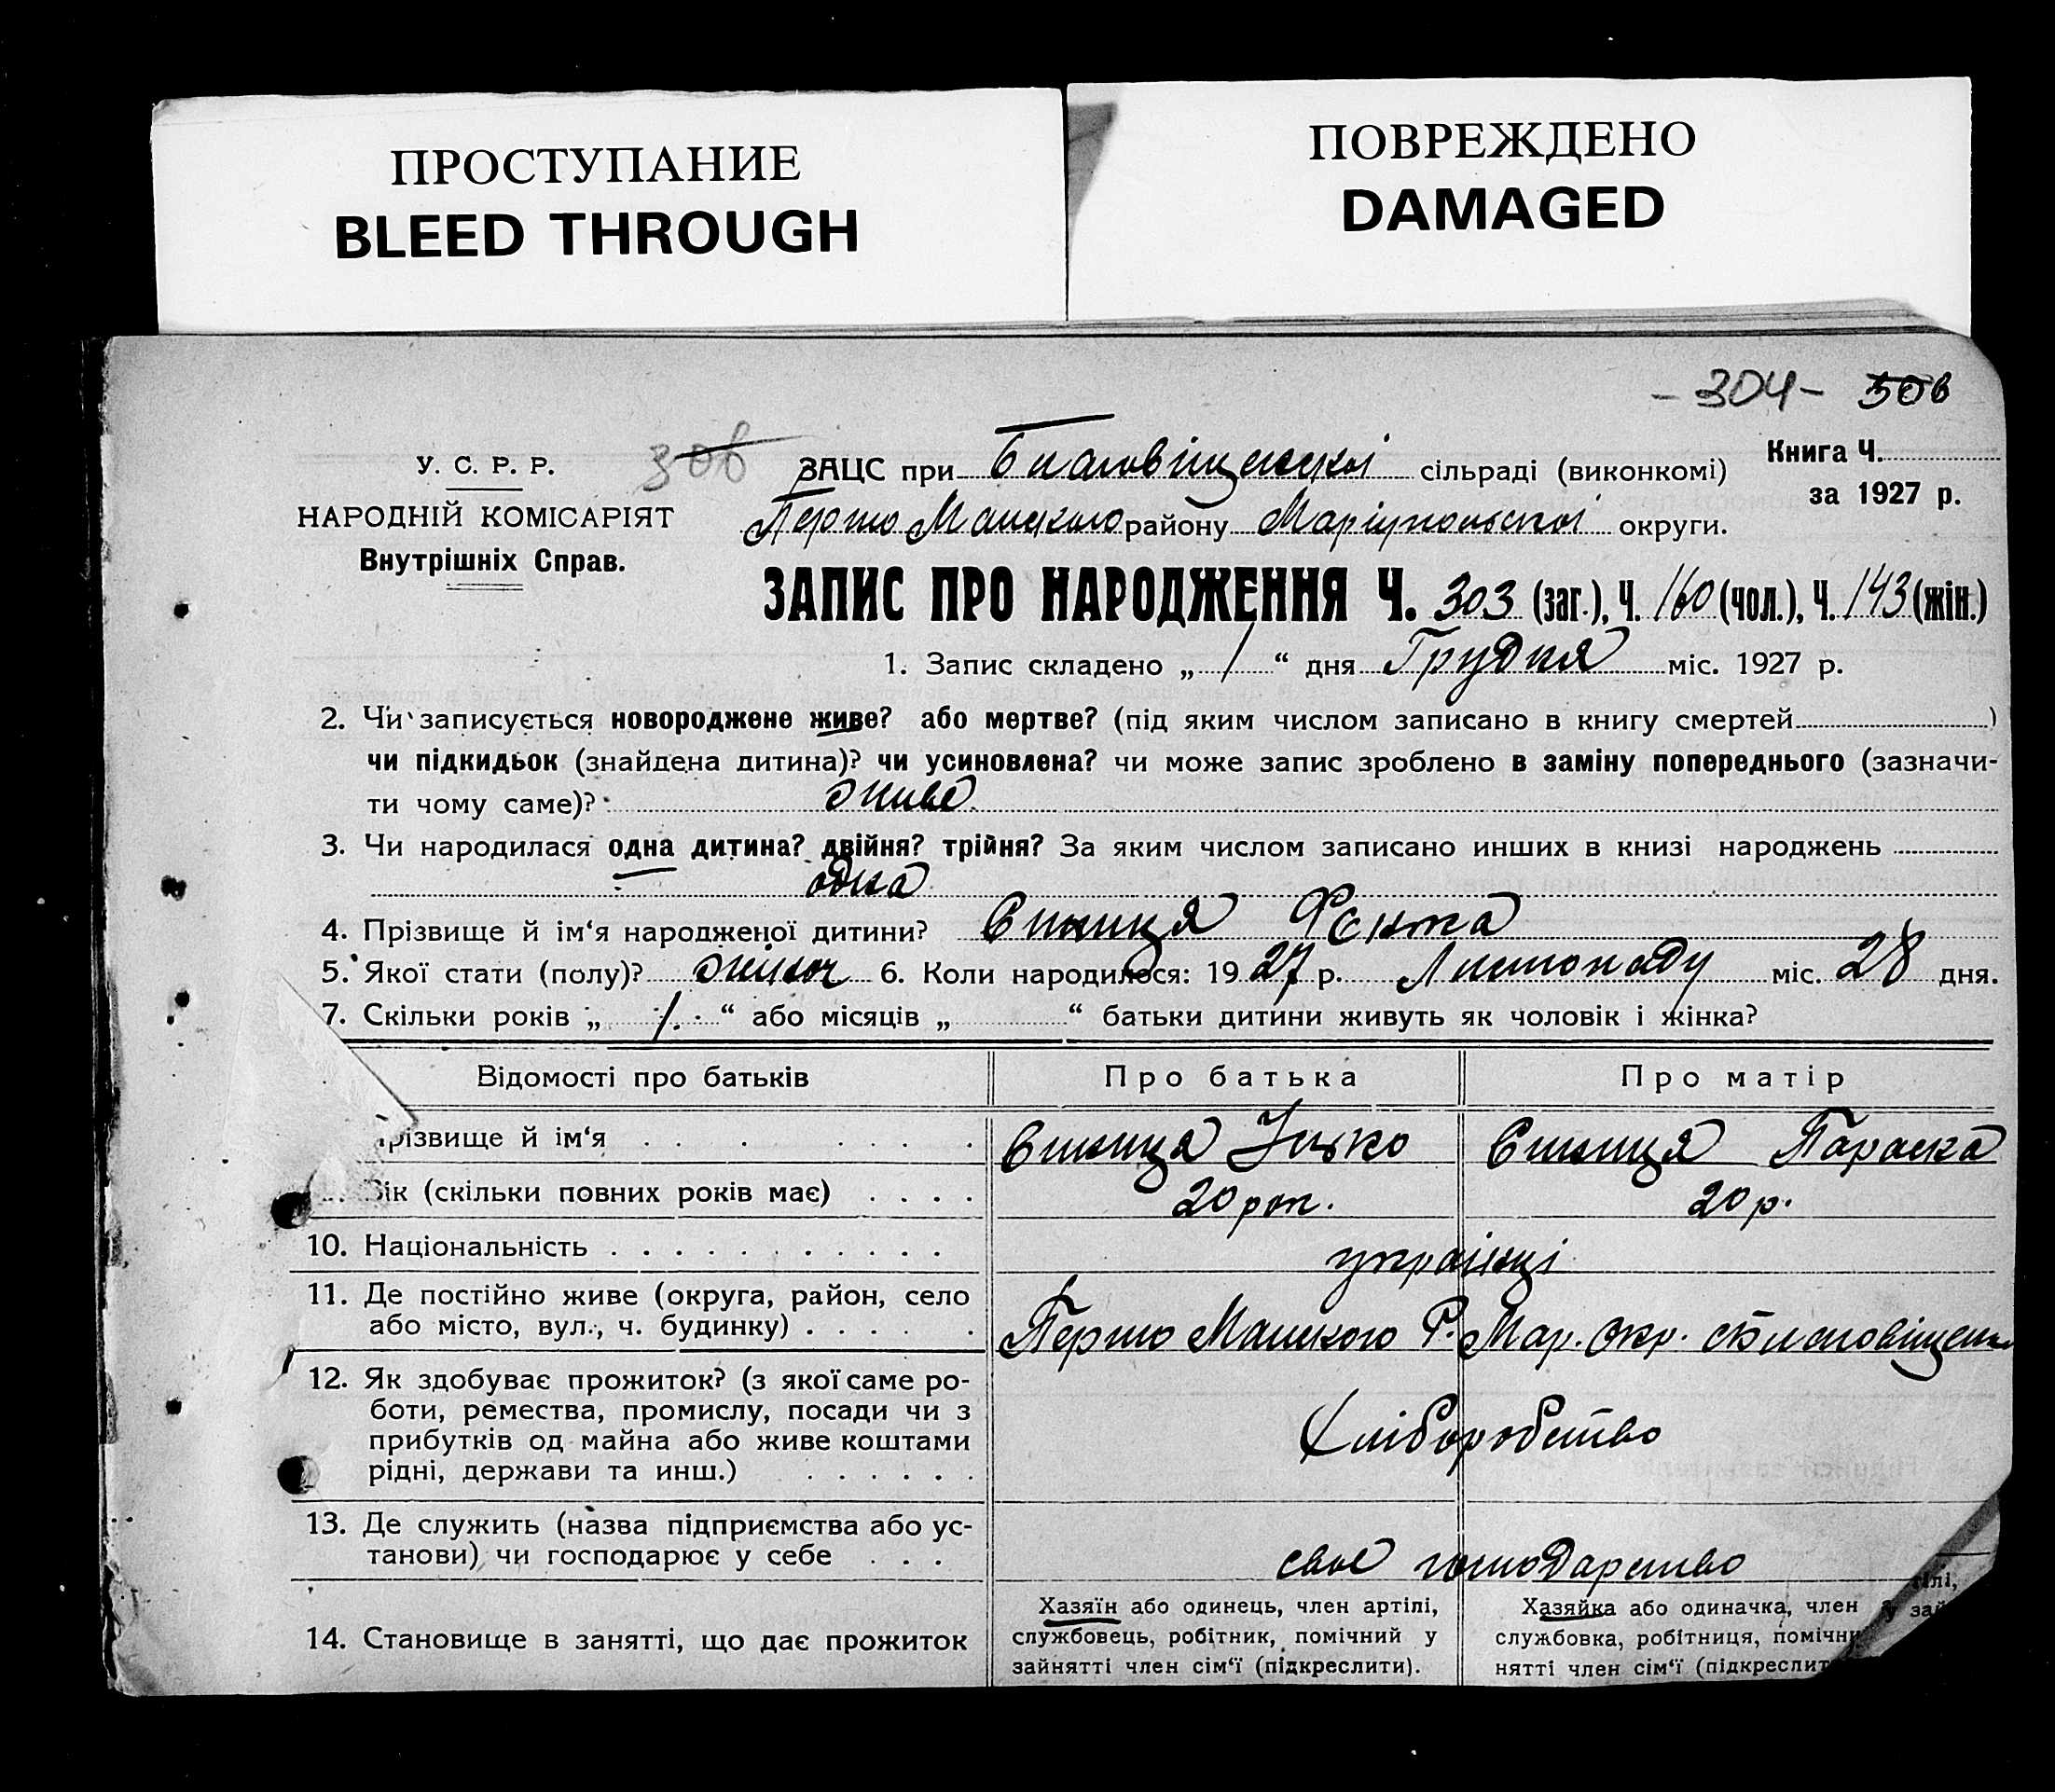 ПРОСТУПАНИЕ
BLEED THROUGH
ПОВРЕЖДЕНО
DAMAGED
-304- 306
306
У. С. Р. Р.
НАРОДНІЙ КОМІСАРІЯТ
Внутрішніх Справ.
ЗАЦС при сільраді (виконкомі)
Книга Ч.
за 1927 р.
Першо району Маріупольської округи.
ЗАПИС ПРО НАРОДЖЕННЯ Ч. 303 (заг.), Ч. 160 (чол.), Ч. 143 (жін.)
1. Запис складено „ 1 “ дня Грудня міс. 1927 р.
2. Чи записується новороджене живе? або мертве? (під яким числом записано в книгу смертей )
чи підкидьок (знайдена дитина)? чи усиновлена? чи може запис зроблено в заміну попереднього (зазначи-
ти чому саме)? живе
3. Чи народилася одна дитина? двійня? трійня? За яким числом записано инших в книзі народжень
одна
4. Прізвище й ім‘я народженої дитини? Синиця Фекта
5. Якої стати (полу)? жіноч 6. Коли народилося: 19 27 р. Листопаду міс. 28 дня.
7. Скільки років „ 1. “ або місяців „ “ батьки дитини живуть як чоловік і жінка?
Відомості про батьків Про батька Про матір
Прізвище й ім‘я Синиця Ицько Синиця Параска
Вік (скільки повних років має) 20 рок. 20 р.
10. Національність українці
11. Де постійно живе (округа, район, село
або місто, вул., ч. будинку) Першо Р. Мар. окр.
12. Як здобуває прожиток? (з якої саме ро-
боти, ремества, промислу, посади чи з
прибутків од майна або живе коштами
рідні, держави та инш.)
Хліборобство
13. Де служить (назва підприємства або ус-
танови) чи господарює у себе
своє господарство
14. Становище в занятті, що дає прожиток
Хазяїн або одинець, член артілі,
службовець, робітник, помічний у
зайнятті член сім‘ї (підкреслити).
Хазяйка або одиначка, член
службовка, робітниця, помічн
нятті член сім‘ї (підкреслит